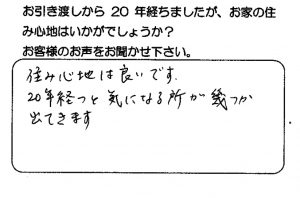 お引き渡しから 20 年経ちましたが、お家の住
み心地はいかがでしょうか?
お客様のお声をお聞かせ下さい。
住み心地は良いです.
20年経つと気になる所が幾つか
出てきます